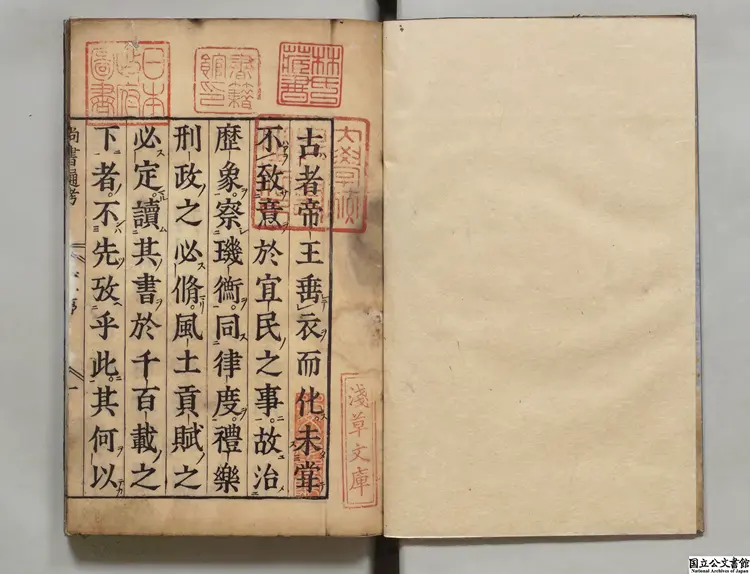 古者帝王垂衣而化。未甞
不致意於宜民之事。故治
歷象。察璣衡。同律度。禮樂
刑政之必脩。風土貢賦之
必定。讀其書於千百載之
下者。不先攷乎此。其何以
尚書通考
林氏藏書
書籍館印
日本政府圖書
淺草文庫
国立公文書館
National Archives of Japan